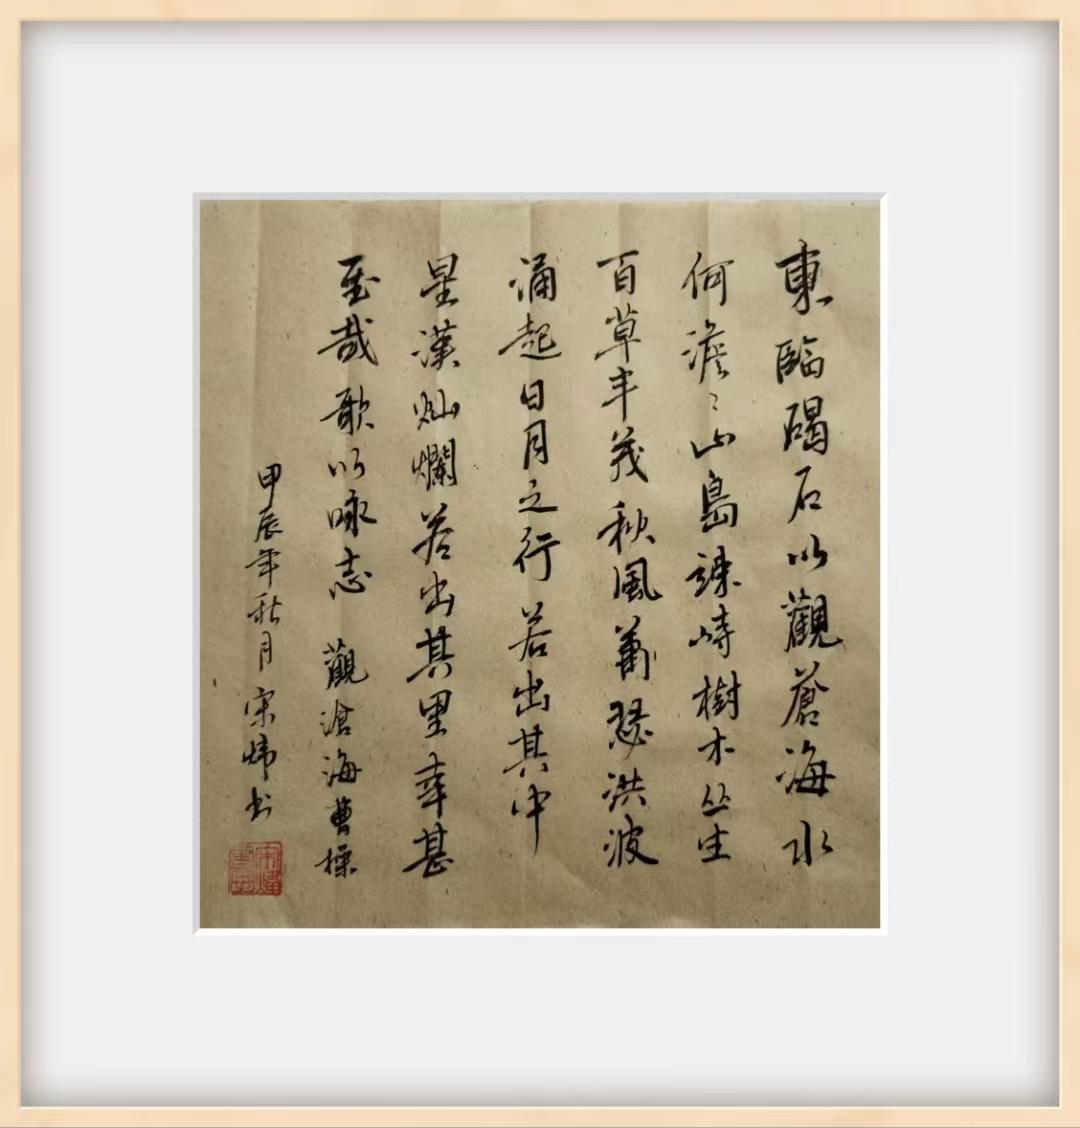 東臨碣石以觀蒼海水
何澹〻山島竦峙樹木丛生
百草丰茂秋風蕭瑟洪波
涌起日月之行若出其中
星漢灿爛若出其里幸甚
至哉歌以咏志 觀滄海曹操
甲辰年秋月宋炜书